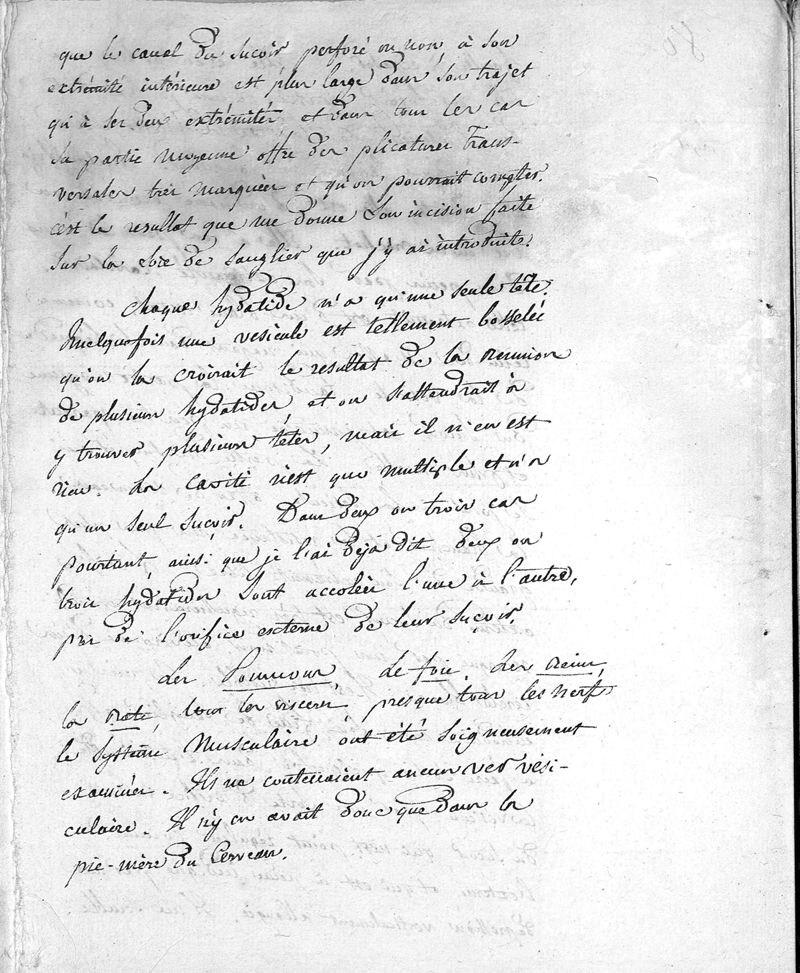 que le canal du suçoir perforé ou non, à son
extrémité intérieure est plus large dans son trajet
qu'à ses deux extrémités et dans tous les cas
sa partie moyenne offre des plicatures trans-
versales très marquées et qu'on pourrait compter.
c'est le resultat que me donne son incision faite
sur la soie de sanglier que j'y ai introduit.
Chaque hydatide n'a qu'une seule tête.
Quelquefois une vesicule est tellement bosselée
qu'on la croirait le resultat de la reunion
de plusieurs hydatides, et on s'attendrait à
y trouver plusieurs têtes, mais il n'en est
rien. La cavité n'est que multiple et n'a
qu'un seul suçoir. Dans deux ou trois cas
pourtant, ainsi que je l'ai déjà dit deux ou
trois hydatides sont accolées l'une à l'autre,
près de l'orifice externe de leur suçoir.
Les Poumons, le foie, les reins,
la rate, tous les visceres, presque tous les nerfs
le système musculaire ont été soigneusement
examinés. Ils ne contenaient aucun ver vési-
culaire. Il n'y en avait donc que dans la
pie-mère du Cerveau.